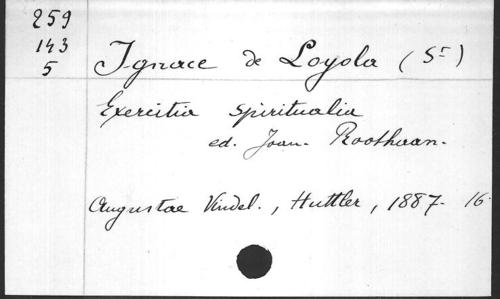 259
143
5
Ignace de Loyola (St)
Exercitia Spiritualia
ed. Joan. Roothaan.
Augustae Vindel., Huttler, 1887. 16.